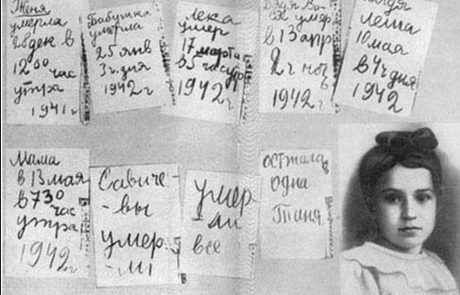 Женя
умерла
28 дек в
12 00 час
утра
1941 г
Бабушка
умерла
25 янв
3 ч. дня
1942 г
Лека
умер
17 марта
в 5 час утр
1942 г
Дядя Ва-
ся умер
в 13 апр
2 ч ноч
1942 г
Дядя
Леша
10 мая
в 4 ч дня
1942
Мама
в 13 мая
в 7 30
час
утра
1942 г
Савиче-
вы
умер-
-ли
умер-
ли
все
остала
одна
Таня